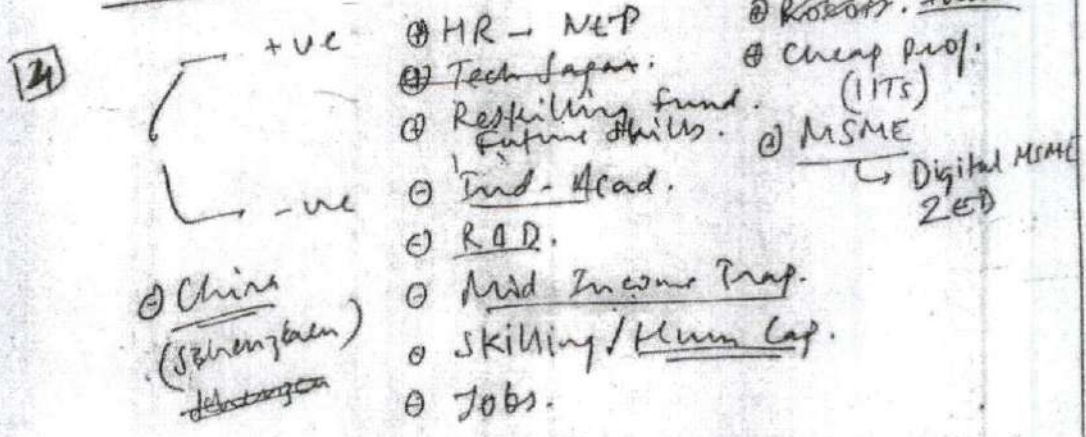 4
+ve
-ve
⊖ China
(Szhenzhen)
⊕ HR - NEP
⊕ Tech Japan.
⊕ Reskilling fund.
Future skills.
⊖ Ind-Acad.
⊖ R&D.
⊖ Mid Income Trap.
⊖ Skilling/Hum Cap.
⊖ Jobs.
⊕ Cheap prof.
(IITs)
⊕ MSME
↳ Digital MSME
ZED